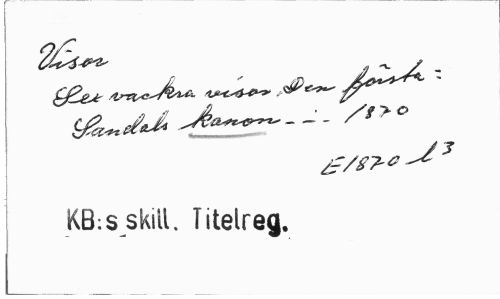 Visor
Sex vackra visor. Den första:
Sandals kanon - - - 1870
E1870 l 3
KB:s skill. Titelreg.